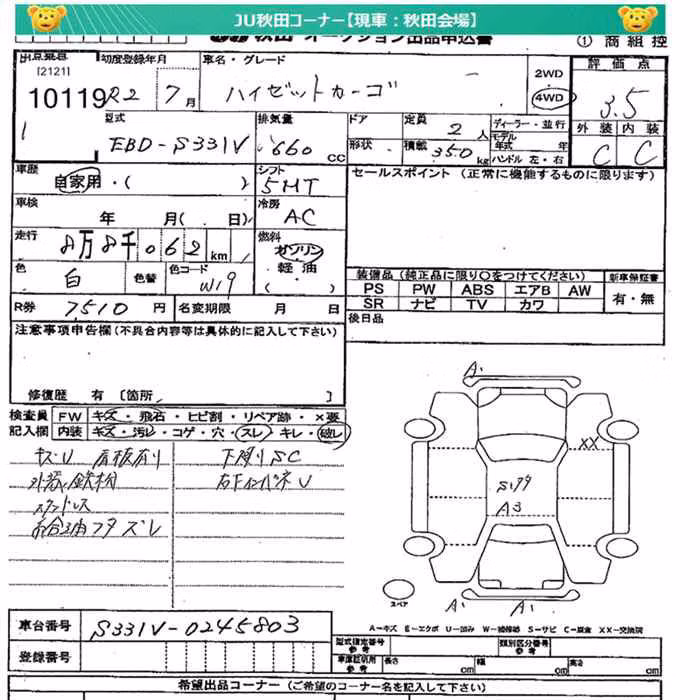 JU秋田コーナー【現車：秋田会場】
秋田 オークション出品申込書 ① 商組控
出品番号 初度登録年月 車名・グレード 2WD 評価点
[2121]
10119 R2 7月 ハイゼットカーゴ 4WD 3.5
1
型式 排気量 ドア 定員 2人 ディーラー・並行 外装 内装
EBD-S331V 660cc 形状 積載 350kg モデル年式 年 C C
ハンドル 左・右
車歴 シフト セールスポイント (正常に機能するものに限ります)
自家用・( ) 5MT
車検 冷房
年 月( 日) AC
走行 8万8千062km 燃料
ガソリン
色 白 色替 色コード W19 軽油
( )
装備品(純正品に限り○をつけてください) 新車保証書
PS PW ABS エアB AW 有・無
SR ナビ TV カワ
R券 7510円 名変期限 月 日
後日品
注意事項申告欄(不具合内容等は具体的に記入して下さい)
修復歴 有 [箇所 ]
検査員 FW キズ・飛石・ヒビ割・リペア跡・×要
記入欄 内装 キズ・汚レ・コゲ・穴・スレ・キレ・破レ
キズU 下廻りSC
A1
XX
S179
A3
スペア
A1 A1
A－キズ E－エクボ U－凹み W－補修跡 S－サビ C－腐食 XX－交換済
車台番号 S331V-0245803
登録番号
型式指定番号 参考 類別区分番号 参考
車庫証明用 参考 長さ cm 幅 cm 高さ cm
希望出品コーナー (ご希望のコーナー名を記入して下さい)